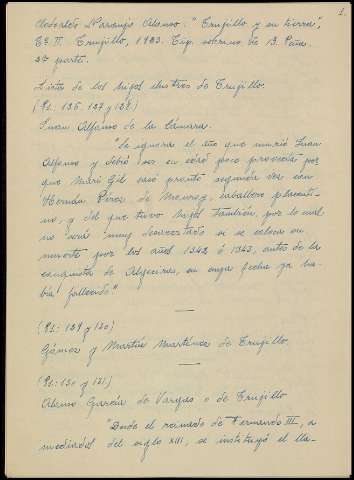 1.
Clodoaldo Naranjo Alonso: "Trujillo y su tierra",
Tº II. Trujillo, 1923. Tip. sobrino de B. Peña.
2ª parte.
Lista de los hijos ilustres de Trujillo.
(Ps. 136, 137 y 138)
Juan Alfonso de la Cámara.
"Se ignora el año que murió Juan
Alfonso y debió ser en edad poco provecta por
que Mari Gil casó pronto segunda vez con
Hernán Pérez de Monroy, caballero placenti-
no, y del que tuvo hijos también, por lo cual
no será muy desacertado si se coloca su
muerte por los años 1342 ó 1343, antes de la
conquista de Algeciras, en cuya fecha ya ha-
bía fallecido."
(Ps.: 139 y 150)
Gómez y Martín Martínez de Trujillo.
(Ps.: 150 y 151)
Alonso García de Vargas o de Trujillo
"Desde el reinado de Fernando III, a
mediados del siglo XIII, se instituyó el lla-